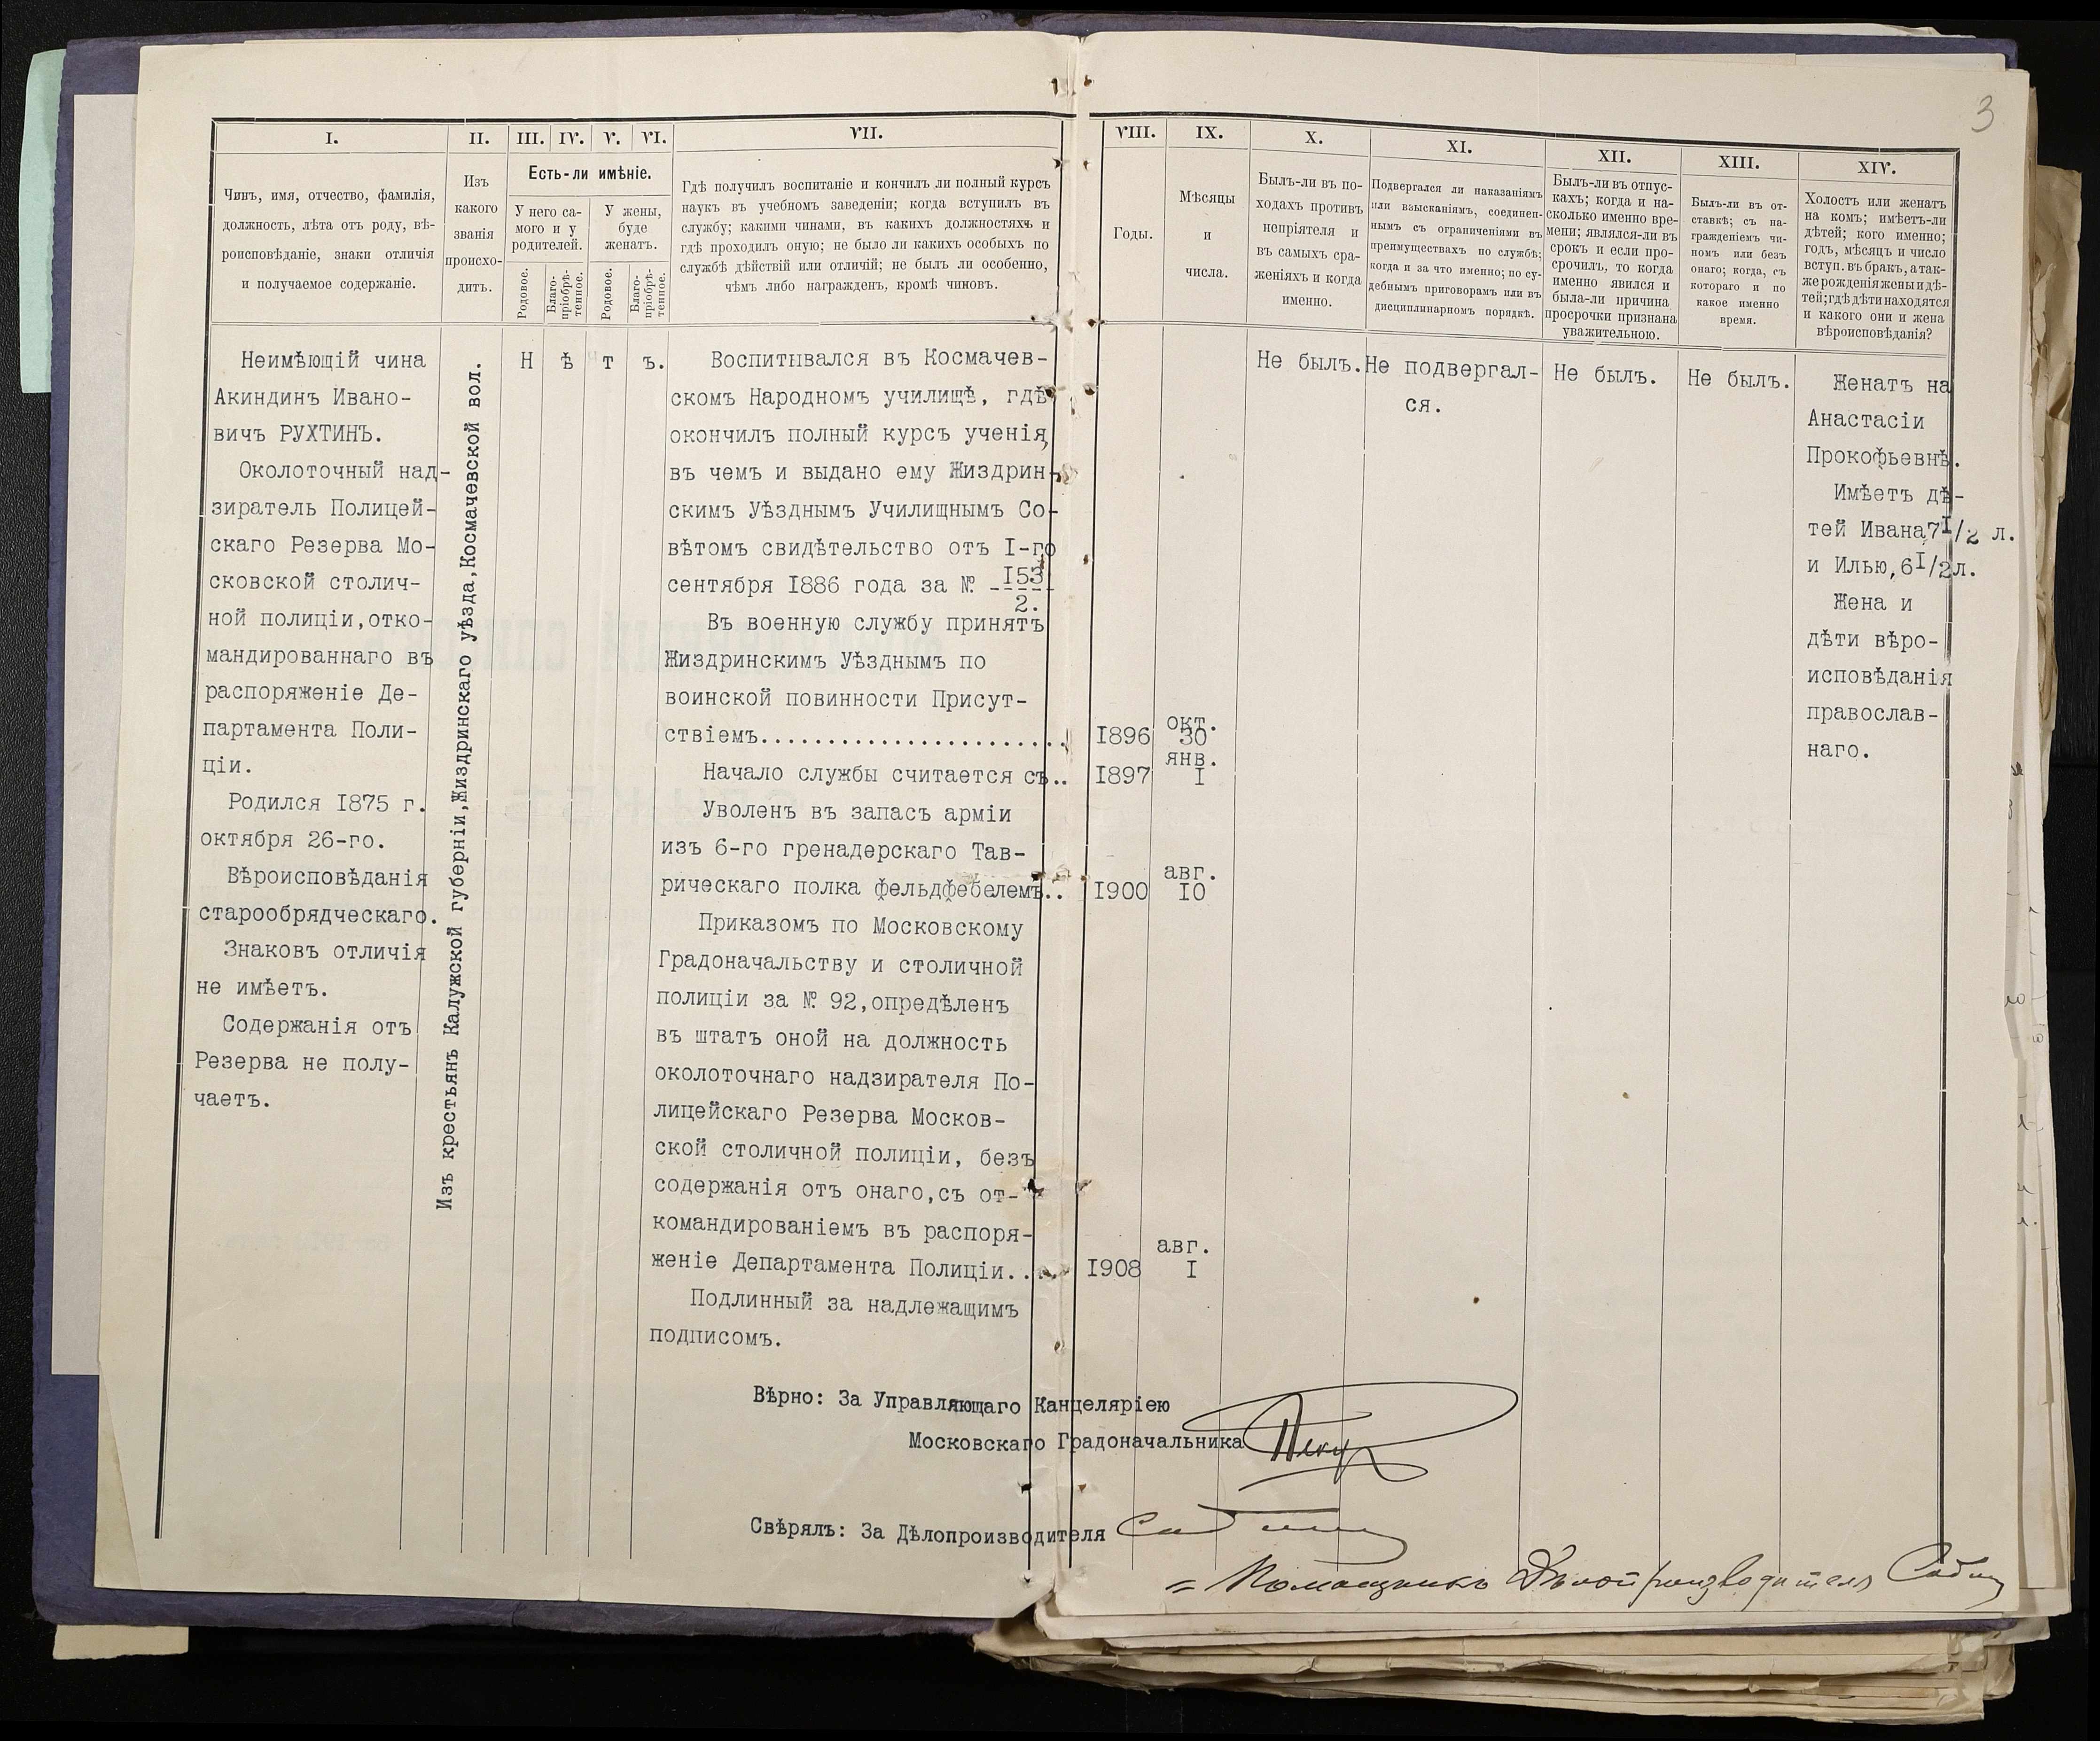 3
I.
Чинъ, имя, отчество, фамилія,
должность, лѣта отъ роду, вѣ-
роисповѣданіе, знаки отличія
и получаемое содержаніе.
II.
Изъ
какого
званія
происхо-
дитъ.
III. IV. V. VI.
Есть-ли имѣніе.
У него са-
мого и у
родителей.
У жены,
буде
женатъ.
Родовое.
Благо-
пріобрѣ-
тенное.
Родовое.
Благо-
пріобрѣ-
тенное.
VII.
Гдѣ получилъ воспитаніе и кончилъ ли полный курсъ
наукъ въ учебномъ заведеніи; когда вступилъ въ
службу; какими чинами, въ какихъ должностяхъ и
гдѣ проходилъ оную; не было ли какихъ особыхъ по
службѣ дѣйствій или отличій; не былъ ли особенно,
чѣмъ либо награжденъ, кромѣ чиновъ.
VIII.
Годы.
IX.
Мѣсяцы
и
числа.
X.
Былъ-ли въ по-
ходахъ противъ
непріятеля и
въ самыхъ сра-
женіяхъ и когда
именно.
XI.
Подвергался ли наказаніямъ
или взысканіямъ, соединен-
нымъ съ ограниченіями въ
преимуществахъ по службѣ;
когда и за что именно; по су-
дебнымъ приговорамъ или въ
дисциплинарномъ порядкѣ.
XII.
Былъ-ли въ отпус-
кахъ; когда и на-
сколько именно вре-
мени; являлся-ли въ
срокъ и если про-
срочилъ, то когда
именно явился и
была-ли причина
просрочки признана
уважительною.
XIII.
Былъ-ли въ от-
ставкѣ; съ на-
гражденіемъ чи-
номъ или безъ
онаго; когда, съ
котораго и по
какое именно
время.
XIV.
Холостъ или женатъ
на комъ; имѣетъ-ли
дѣтей; кого именно;
годъ, мѣсяцъ и число
вступ. въ бракъ, а так-
же рожденія жены и дѣ-
тей; гдѣ дѣти находятся
и какого они и жена
вѣроисповѣданія?
Неимѣющій чина
Акиндинъ Ивано-
вичъ РУХТИНЪ.
Околоточный над-
зиратель Полицей-
скаго Резерва Мо-
сковской столич-
ной полиціи,отко-
мандированнаго въ
распоряженіе Де-
партамента Поли-
ціи.
Родился 1875 г.
октября 26-го.
Вѣроисповѣданія
старообрядческаго.
Знаковъ отличія
не имѣетъ.
Содержанія отъ
Резерва не полу-
чаетъ.
Изъ крестьянъ Калужской губерніи,Жиздринскаго уѣзда,Космачевской вол.
Н ѣ т ъ.
Воспитывался въ Космачев-
скомъ Народномъ училищѣ, гдѣ
окончилъ полный курсъ ученія,
въ чемъ и выдано ему Жиздрин-
скимъ Уѣзднымъ Училищнымъ Со-
вѣтомъ свидѣтельство отъ I-го
сентября 1886 года за № 153
2.
Въ военную службу принятъ
Жиздринскимъ Уѣзднымъ по
воинской повинности Присут-
ствіемъ....................... 1896 окт. 30
Начало службы считается съ.. 1897 янв. I
Уволенъ въ запасъ арміи
изъ 6-го гренадерскаго Тав-
рическаго полка фельдфебелемъ.. 1900 авг. 10
Приказомъ по Московскому
Градоначальству и столичной
полиціи за № 92,опредѣленъ
въ штатъ оной на должность
околоточнаго надзирателя По-
лицейскаго Резерва Москов-
ской столичной полиціи, безъ
содержанія отъ онаго,съ от-
командированіемъ въ распоря-
женіе Департамента Полиціи.... 1908 авг. I
Подлинный за надлежащимъ
подписомъ.
Не былъ.
Не подвергал-
ся.
Не былъ.
Не былъ.
Женатъ на
Анастасіи
Прокофьевнѣ.
Имѣетъ дѣ-
тей Ивана,7 I/2 л.
и Илью,6 I/2 л.
Жена и
дѣти вѣро-
исповѣданія
православ-
наго.
Вѣрно: За Управляющаго Канцеляріею
Московскаго Градоначальника
Свѣрялъ: За Дѣлопроизводителя
= Помощникъ Дѣлопроизводителя